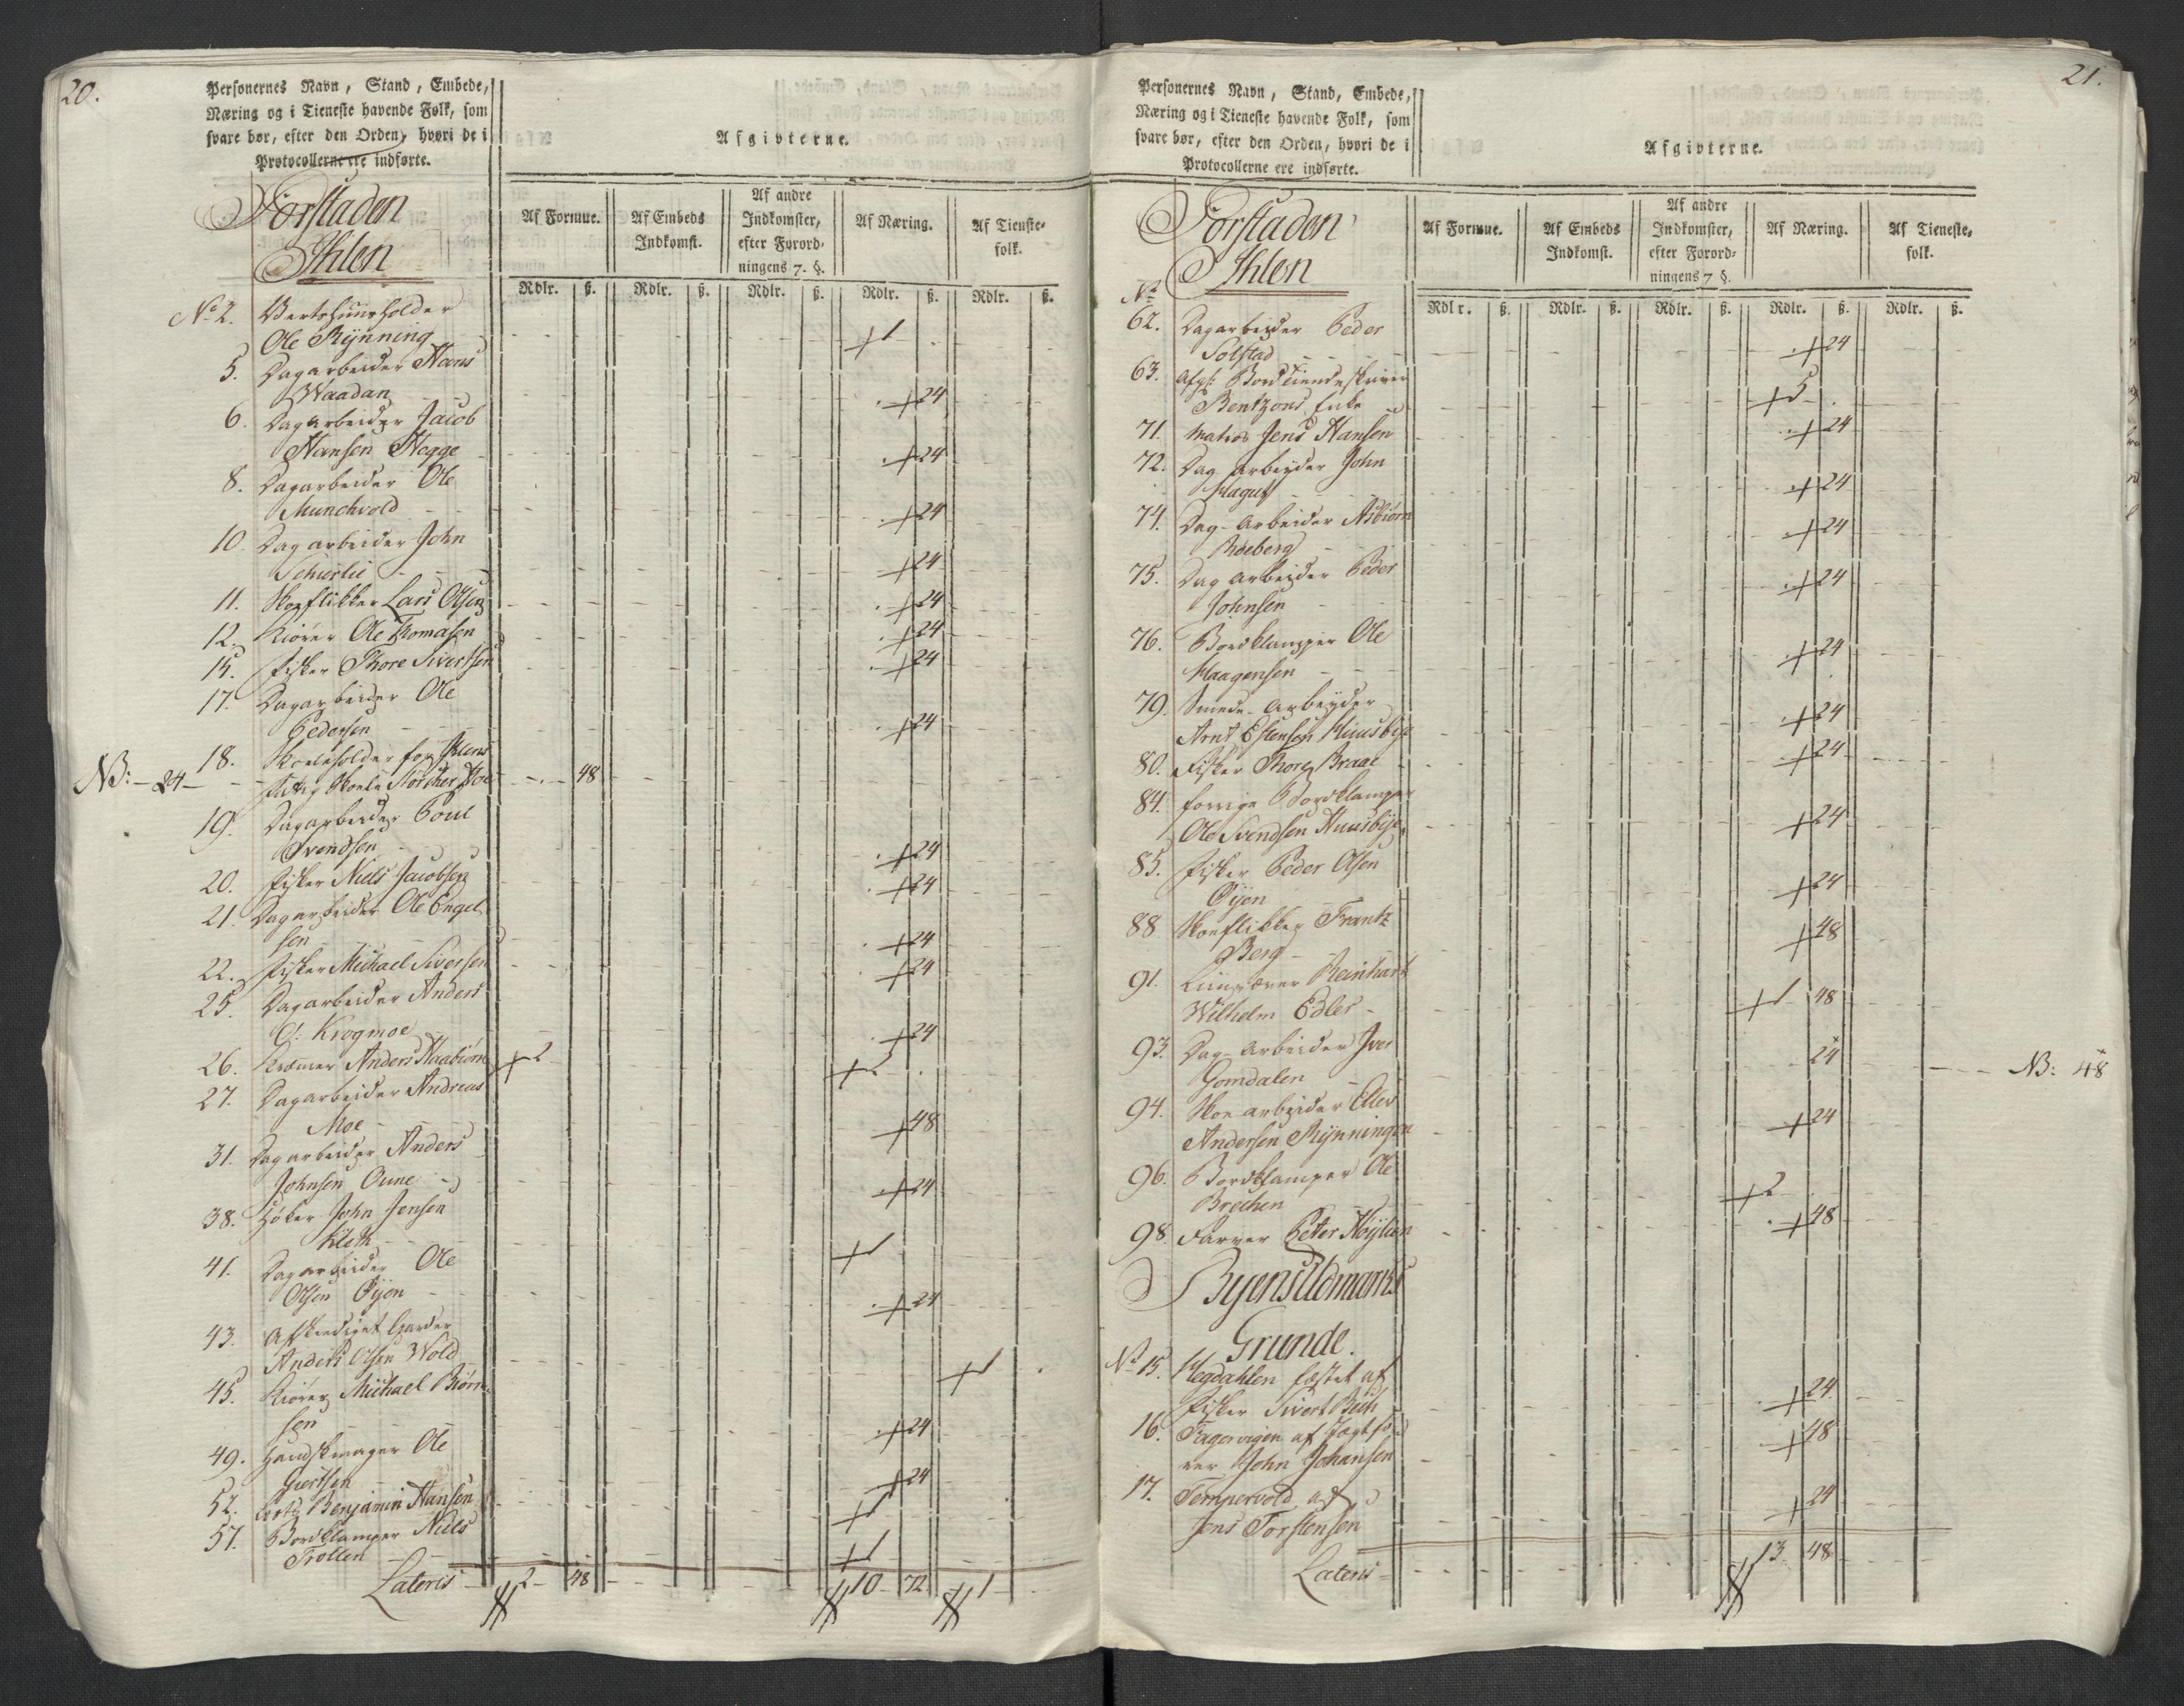 20.
Personernes Navn, Stand, Embede,
Næring og i Tieneste havende Folk, som
svare bør, efter den Orden, hvori de i
Protocollerne ere indførte.
Afgivterne.
Forstaden
Ihlen
Af Formue.
Af Embeds
Indkomst.
Af andre
Indkomster,
efter Forord-
ningens 7. §.
Af Næring.
Af Tieneste-
folk.
Rdlr. ß. Rdlr. ß. Rdlr. ß. Rdlr. ß. Rdlr. ß.
No 2. Vertshuusholder
Ole Rÿnning 1
5. Dagarbeider Hans
Waadan 24
6. Dagarbeider Jacob
Hansen Hegge 24
8. Dagarbeider Ole
Munchvold 24
10. Dagarbeider John
Schierlie 24
11. Skoeflikker Lars Olsen 24
12. Kiører Ole Thomasen 24
15. Fisker Thore Siversen 24
17. Dagarbeider Ole
Pedersen 24
18. Skoleholder for
NB: - 24 - Fattig Skole Størcher Hoe 48
19. Dagarbeider Poul
Svendsen 24
20. Fisker Niels Jacobsen 24
21. Dagarbeider Ole Engel
sen 24
22. Fisker Michael Siversen 24
25. Dagarbeider Anders
O: Krogmoe 24
26. Kræmer Anders Haabiørn 2 2
27. Dagarbeider Andreas
Moe 48
31. Dagarbeider Anders
Johnsen Oune 24
38. Høker John Jensen
Kleth 1
41. Dagarbeider Ole
Olsen Øÿen 24
43. Afskediget Garder
Anders Olsen Wold 1
45. Kiører Michael Biørn-
sen 24
49. Handskemager Ole
Giertsen 24
52. Benjamin Hansen 1
57. Bordklamper Niels
Trollen 1
Lateris 2 48 10 72 1
21.
Personernes Navn, Stand, Embede,
Næring og i Tieneste havende Folk, som
svare bør, efter den Orden, hvori de i
Protocollerne ere indførte.
Afgivterne.
Forstaden
Ihlen
Af Formue.
Af Embeds
Indkomst.
Af andre
Indkomster,
efter Forord-
ningens 7 §.
Af Næring.
Af Tieneste-
folk.
Rdlr. ß. Rdlr. ß. Rdlr. ß. Rdlr. ß. Rdlr. ß.
No
62. Dagarbeider Peder
Solstad 24
63. Afgl: Bordtiendeskriver
Bentzons Enke 5
71. Matros Jens Hansen 24
72. Dag arbeyder John
Hagus 24
74. Dag-Arbeider Asbiørn
Roeberg 24
75. Dag arbeider Peder
Johnsen 24
76. Bordklamper Ole
Haagensen 24
79. Smede-Arbeyder
Arnt Estensen Huusbye 24
80. Fisker Thore Braae 24
84. forrige Bordklamper
Ole Svendsen Huusbye 24
85. Fisker Peder Olsen
Øÿen 24
88 Skoeflikker Frantz
Berg 48
91. Reinhart
Wilhelm Edler 1 48
93. Dag-Arbeider Iver
Gomdalen 24 NB: 48
94. Skoe arbeider Eller
Andersen Rÿnningen 24
96. Bordklamper Ole
Brechen 2
98. Farver Peter Høÿlien 48
Byens Udmarks
Grunde.
No 15. Hegdahlen fæstet af
Fisker Sivert Bech 24
16. Fagervigen af Jagtfø
rer John Johansen 48
17. Tempervold af
Jens Torstensen 24
Lateris 13 48